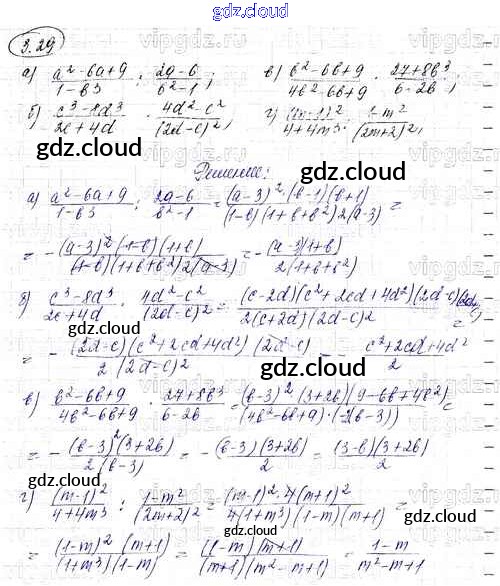 gdz.cloud
3.29
а) (a²-6a+9)/(1-b³) : (2a-6)/(b²-1); в) (b²-6b+9)/(4b²-6b+9) · (27+8b³)/(6-2b);
б) (c³-8d³)/(2c+4d) · (4d²-c²)/(2d-c)²; г) (m-1)²/(4+4m³) : (1-m²)/(2m+2)²;
gdz.cloud gdz.cloud
Решение:
а) (a²-6a+9)/(1-b³) : (2a-6)/(b²-1) = ((a-3)²·(b-1)(b+1))/((1-b)(1+b+b²)2(a-3)) =
= -((a-3)²(1-b)(1+b))/((1-b)(1+b+b²)2(a-3)) = -((a-3)(1+b))/(2(1+b+b²))
б) (c³-8d³)/(2c+4d) · (4d²-c²)/(2d-c)² = ((c-2d)(c²+2cd+4d²)(2d-c)/(2(c+2d)(2d-c)²
gdz.cloud gdz.cloud
= -((2d-c)(c²+2cd+4d²)(2d-c))/(2(2d-c)²) = -(c²+2cd+4d²)/2
в) (b²-6b+9)/(4b²-6b+9) · (27+8b³)/(6-2b) = ((b-3)²(3+2b)(9-6b+4b²))/((4b²-6b+9)·(-2(b-3))) =
= -((b-3)²(3+2b))/(2(b-3)) = -((b-3)(3+2b))/2 = ((3-b)(3+2b))/2
г) (m-1)²/(4+4m³) : (1-m²)/(2m+2)² = ((m-1)²·4(m+1)²)/(4(1+m³)(1-m)(m+1)) =
gdz.cloud gdz.cloud
= ((1-m)²(m+1))/((1+m³)(1-m)) = ((1-m)(m+1))/((m+1)(m²-m+1)) = (1-m)/(m²-m+1)